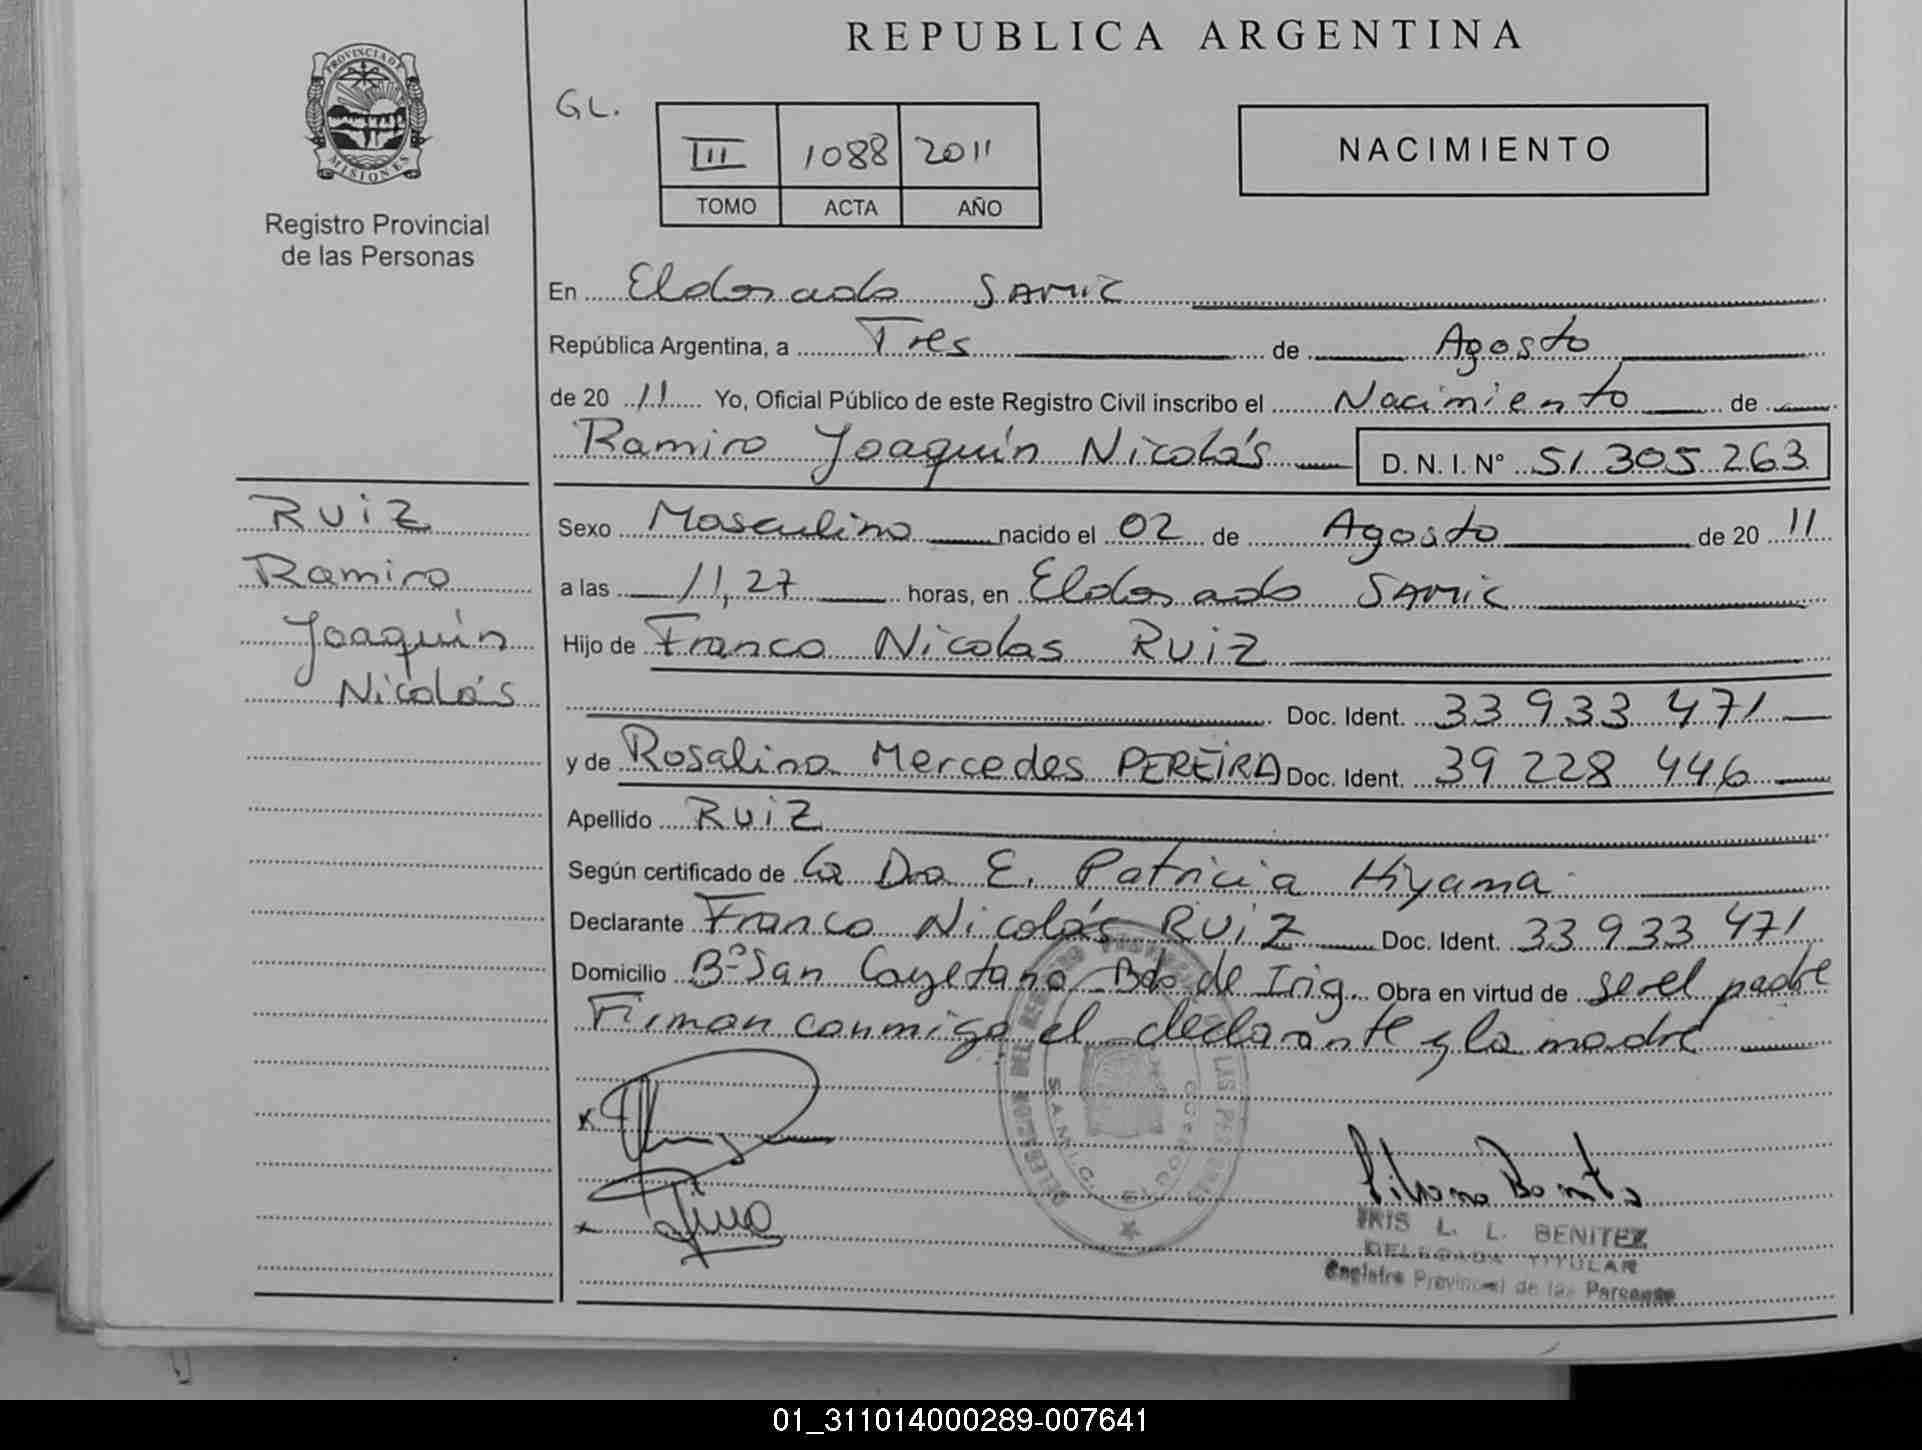 REPUBLICA ARGENTINA
PROVINCIA DE
MISIONES
Registro Provincial
de las Personas
GL.
III 1088 2011
TOMO ACTA AÑO
NACIMIENTO
En Eldorado SAMIC
República Argentina, a Tres de Agosto
de 20 11 Yo, Oficial Público de este Registro Civil inscribo el Nacimiento de
Ramiro Joaquín Nicolás D. N. I. N° 51 305 263
RUIZ
Ramiro
Joaquín
Nicolás
Sexo Masculino nacido el 02 de Agosto de 20 11
a las 11,27 horas, en Eldorado SAMIC
Hijo de Franco Nicolas RUIZ
Doc. Ident. 33 933 471
y de Rosalina Mercedes PEREIRA Doc. Ident. 39 228 446
Apellido RUIZ
Según certificado de la Dra E. Patricia Hiyama
Declarante Franco Nicolás RUIZ Doc. Ident. 33 933 471
Domicilio B° San Cayetano Bdo de Irig. Obra en virtud de ser el padre
Firman conmigo el declarante y la madre
S.A.M.I.C.
IRIS L. L. BENITEZ
DELEGADA TITULAR
Registro Provincial de las Personas
01_311014000289-007641